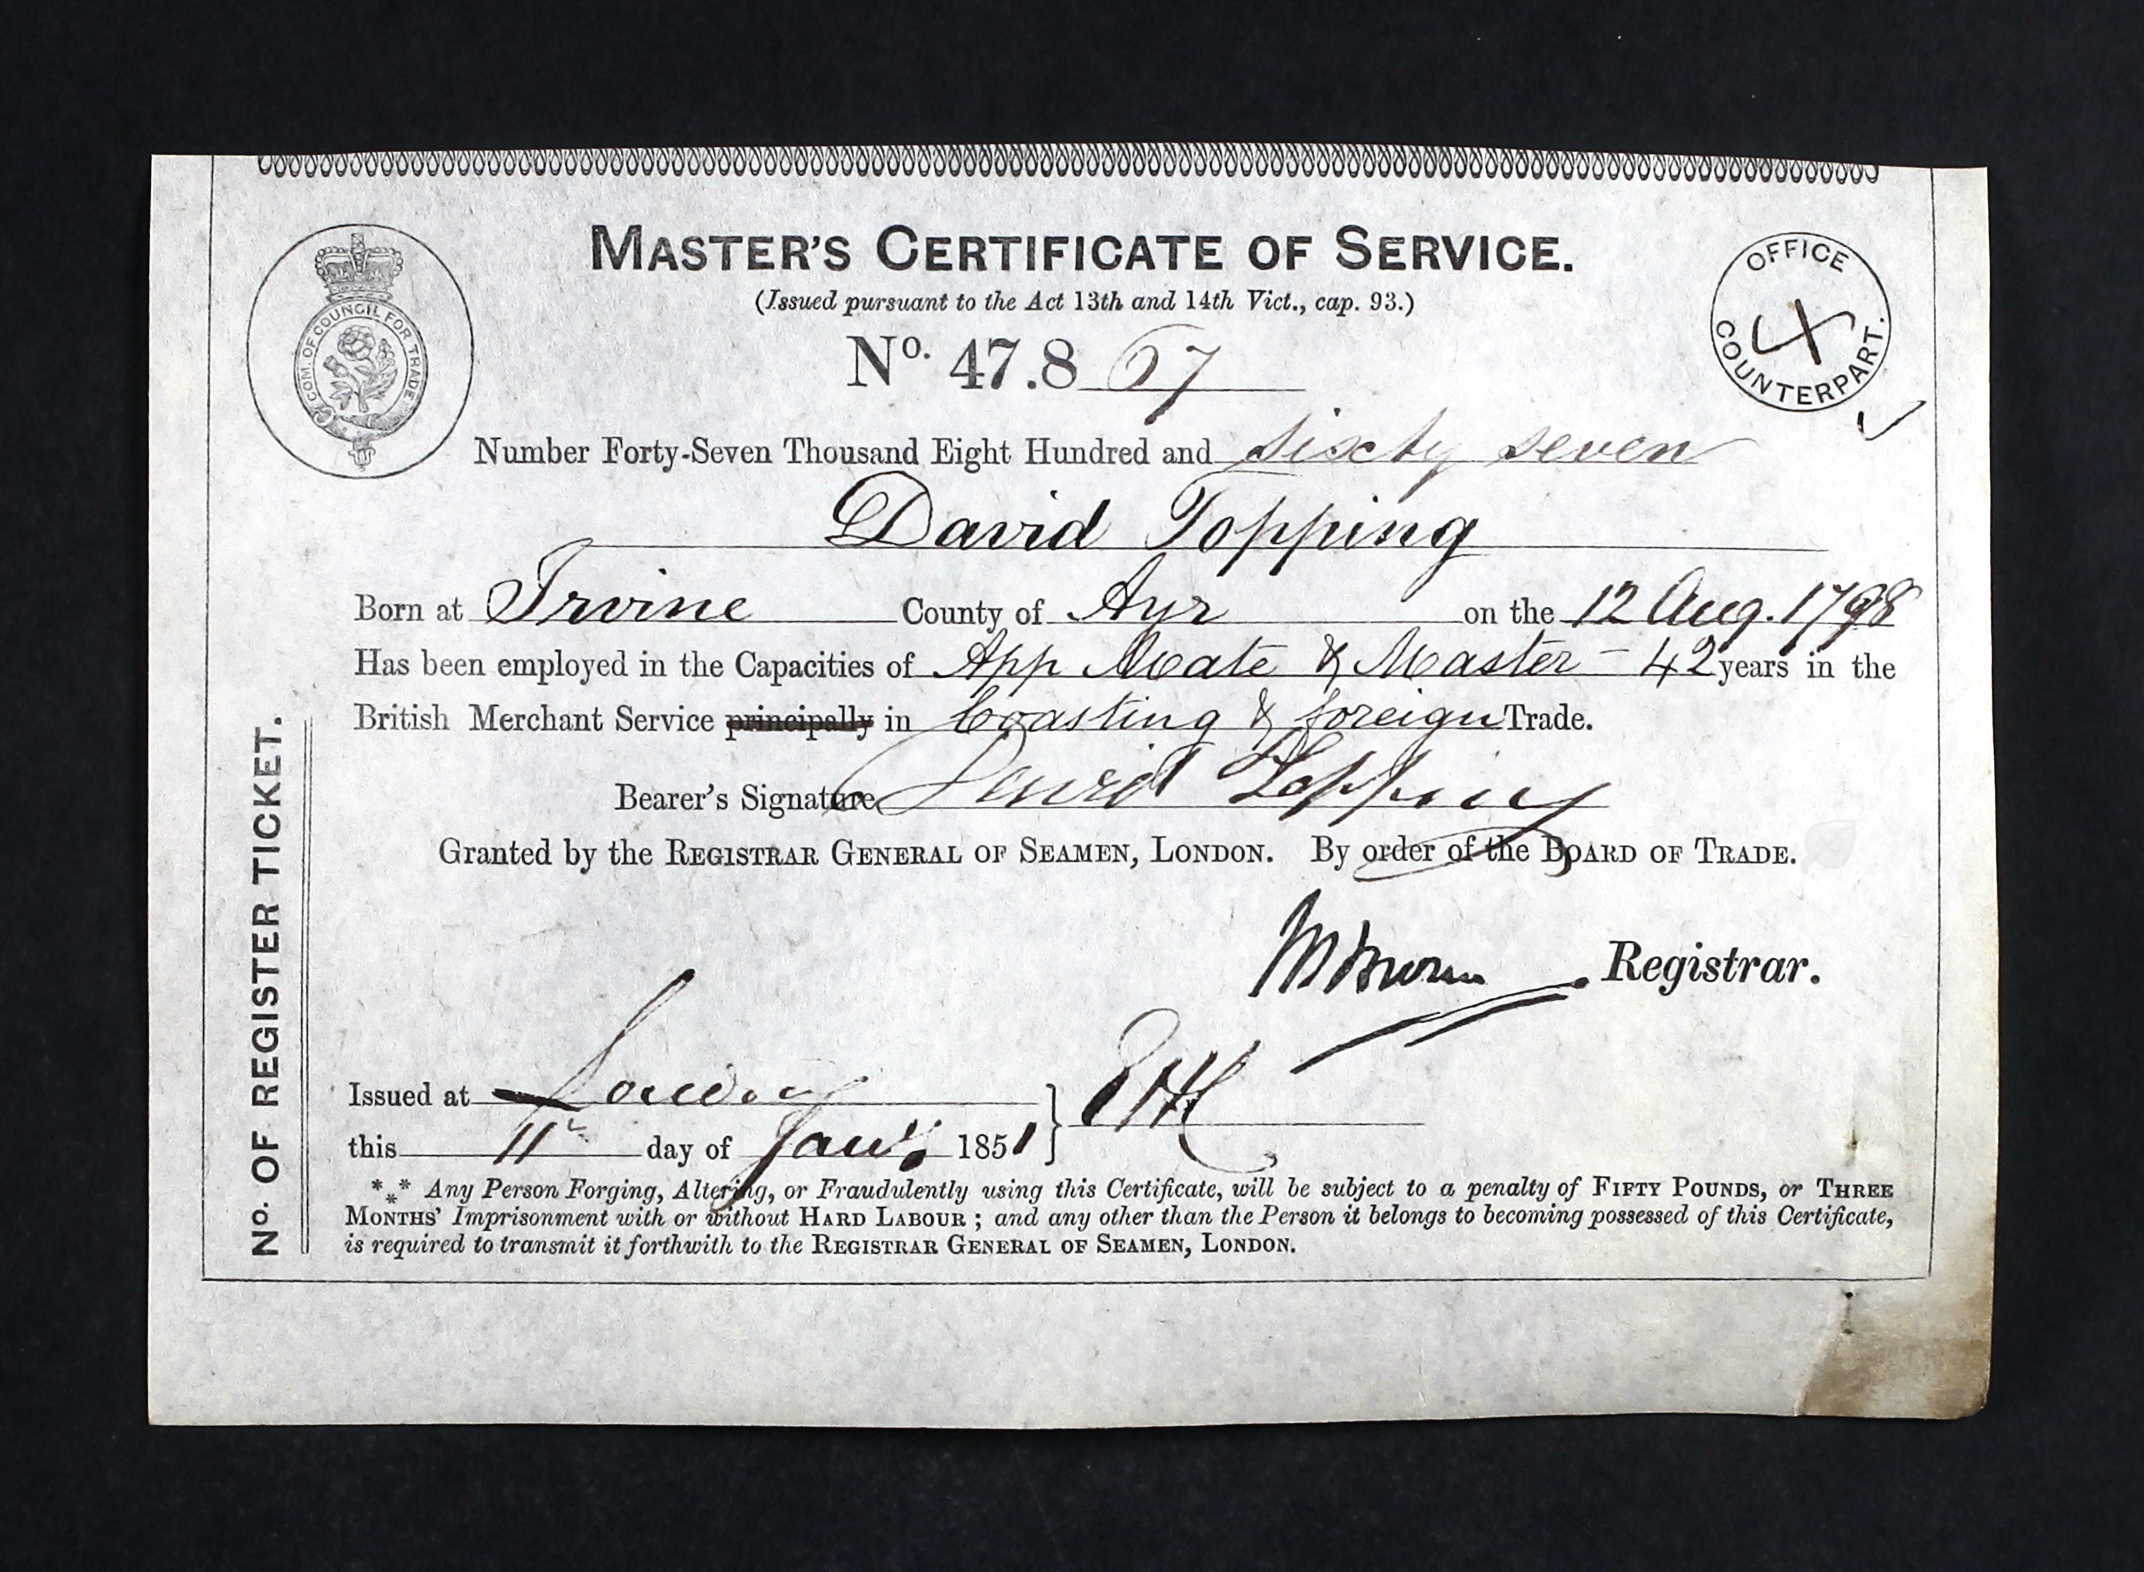 MASTER'S CERTIFICATE OF SERVICE.
(Issued pursuant to the Act 13th and 14th Vict., cap. 93.)
COM. OF COUNCIL FOR TRADE
OFFICE COUNTERPART.
No. 47.8 67
Number Forty-Seven Thousand Eight Hundred and sixty seven
David Topping
Born at Irvine County of Ayr on the 12 Aug. 1798
Has been employed in the Capacities of App Mate & Master - 42 years in the
British Merchant Service principally in Coasting & foreign Trade.
Bearer's Signature David Topping
Granted by the REGISTRAR GENERAL OF SEAMEN, LONDON. By order of the BOARD OF TRADE.
Registrar.
Issued at London
this 11th day of Jany 1851
*** Any Person Forging, Altering, or Fraudulently using this Certificate, will be subject to a penalty of FIFTY POUNDS, or THREE
MONTHS' Imprisonment with or without HARD LABOUR ; and any other than the Person it belongs to becoming possessed of this Certificate,
is required to transmit it forthwith to the REGISTRAR GENERAL OF SEAMEN, LONDON.
No. OF REGISTER TICKET.